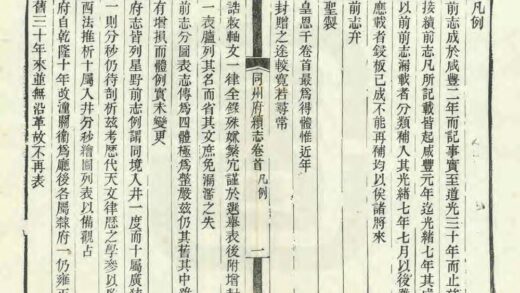 凡例
前志成於咸豐二年而記事實至道光三十年而止茲
接續前志凡所記載皆起咸豐元年迄光緒七年其咸
以前前志漏載者分類補入其光緒七年七月以後
應載者鋟板已成不能再補均以俟諸將來
前志弁
聖製
皇恩于卷首最為得體惟近年
封贈之途較寬若尋常
誥敕軸文一律全錄殊嫌繁冗謹於選舉表後附增封
一表臚列其名而省其文庶免漏畧之失
前志分圖表志傳為四體極為整嚴茲仍其舊其中
有增損而體例實未變更
府志皆列星野前志例謂同境入井一度而十屬廣
一則分秒仍待剖析茲考歷代天文律歷之學參以
西法推析十屬入井分秒繪圖列表以備觀占
府自乾隆十年改潼關衛為廳後各屬隸府一仍雍正
舊三十年來並無沿革故不再表
同州府續志卷首
凡例
一